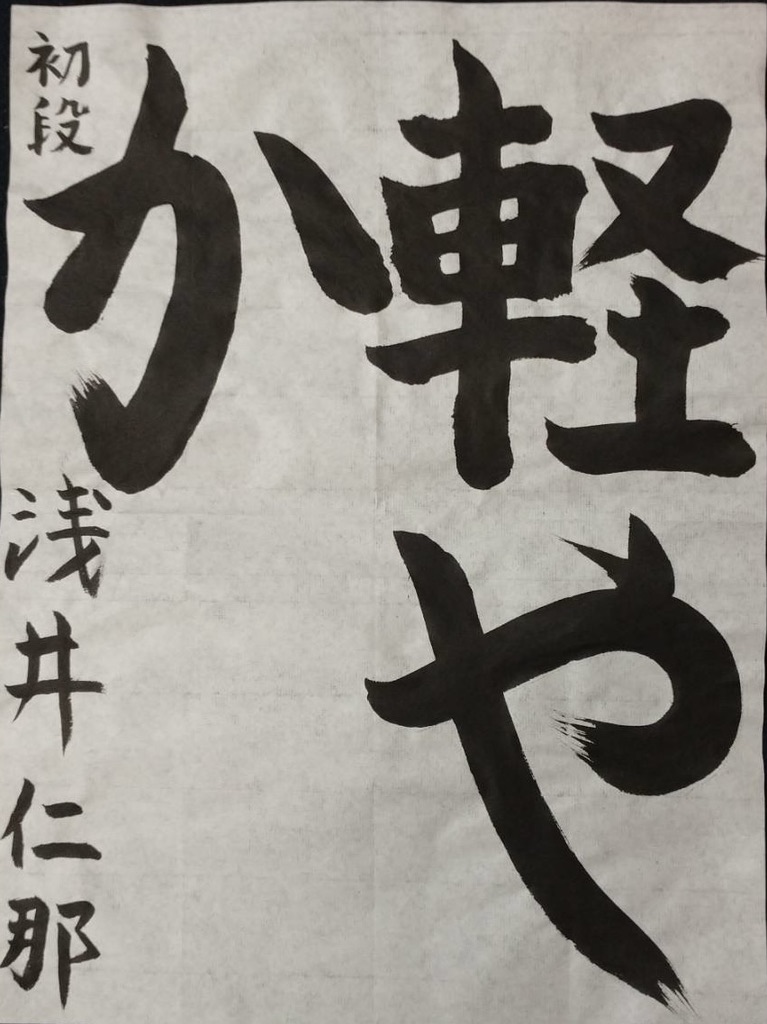 軽や
か
初段 浅井仁那